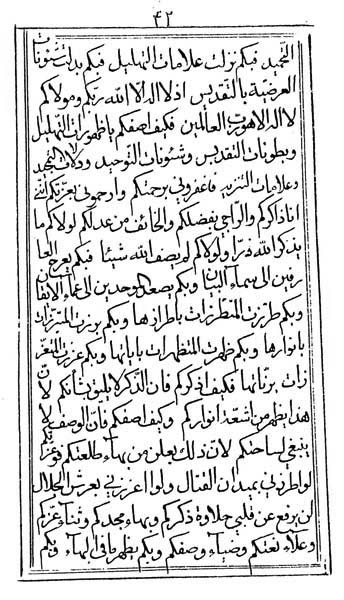 ٤٢
التحميد فبكم نزلت علامات التهليل فبكم بدلت شئونات
العرضية بالتقديس اذ لا اله الا الله ربكم ومولاكم
لا اله الا هو رب العالمين فكيف اصفكم يا ظهورات التهليل
وبطونات التقديس وشئونات التوحيد ودلالات التحميد
وعلامات التنزيه فاغفروني برحمتكم وارحموني بعزتكم لانني
انا ذاكركم والراجي بفضلكم والخائف من عدلكم لولاكم ما
يذكر الله ذرا ولولاكم لم يصف الله شيئا فبكم يعرج العا
رفين الى سماء البيان وبكم يصعد الموحدين الى عماء الايقان
وبكم طرزت المتطرزات باطرازها وبكم برزت المتبرزات
بانوارها وبكم ظهرت المتظهرات باياتها وبكم عززت المتعز
زات برناتها فكيف اذكركم فان الذكر لا يليق بشأنكم لان
هذا يظهر من اشعة انواركم وكيف اصفكم فان الوصف لا
ينبغي لساحتكم لان ذلك يعلن من بهاء طلعتكم فوعزتكم
لو اطردني بميدان القتال ولو اعززني بعرش الجلال
لن يرفع عن قلبي حلاوة ذكركم وبهاء مجدكم وثناء عزكم
وعلاء نعتكم وضياء وصفكم وبكم يظهر ما في البهاء وبكم